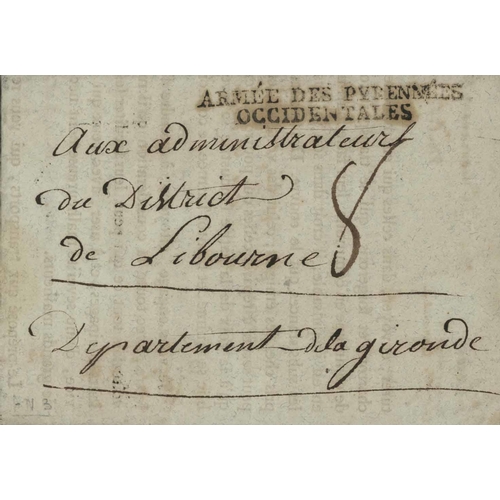 ARMÉE DES PYRENNÉES
OCCIDENTALES
Aux administrateurs
du District
de Libourne
8
Département de la gironde
N 3